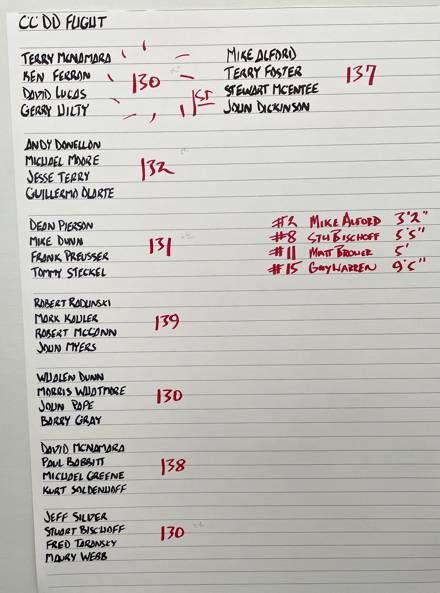 CC DD FLIGHT
TERRY MCNAMARA
KEN FERRON
DAVID LUCAS
GERRY WILTY
130
1ST
MIKE ALFORD
TERRY FOSTER
STEWART MCENTEE
JOHN DICKINSON
137
ANDY DONELLON
MICHAEL MOORE
JESSE TERRY
GUILLERMO OLARTE
132
DEAN PIERSON
MIKE DUNN
FRANK PREUSSER
TOMMY STECKEL
131
#2 MIKE ALFORD 3'2"
#8 STU BISCHOFF 5'5"
#11 MATT BROWER 5'
#15 GUY WARREN 9'5"
ROBERT RADUNSKI
MARK KAULER
ROBERT MCGANN
JOHN MYERS
139
WHALEN DUNN
MORRIS WHATMORE
JOHN POPE
BARRY GRAY
130
DAVID MCNAMARA
PAUL BABBITT
MICHAEL GREENE
KURT SOLDENHOFF
138
JEFF SILVER
STUART BISCHOFF
FRED TARANSKY
MAURY WEBB
130